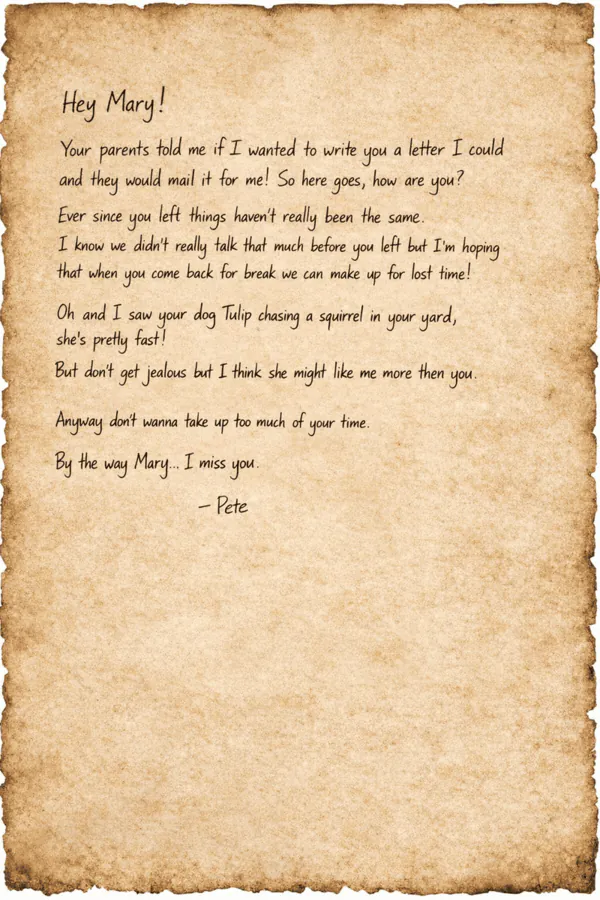 Hey Mary!
Your parents told me if I wanted to write you a letter I could
and they would mail it for me! So here goes, how are you?
Ever since you left things haven't really been the same.
I know we didn't really talk that much before you left but I'm hoping
that when you come back for break we can make up for lost time!
Oh and I saw your dog Tulip chasing a squirrel in your yard,
she's pretty fast!
But don't get jealous but I think she might like me more then you.
Anyway don't wanna take up too much of your time.
By the way Mary... I miss you.
– Pete